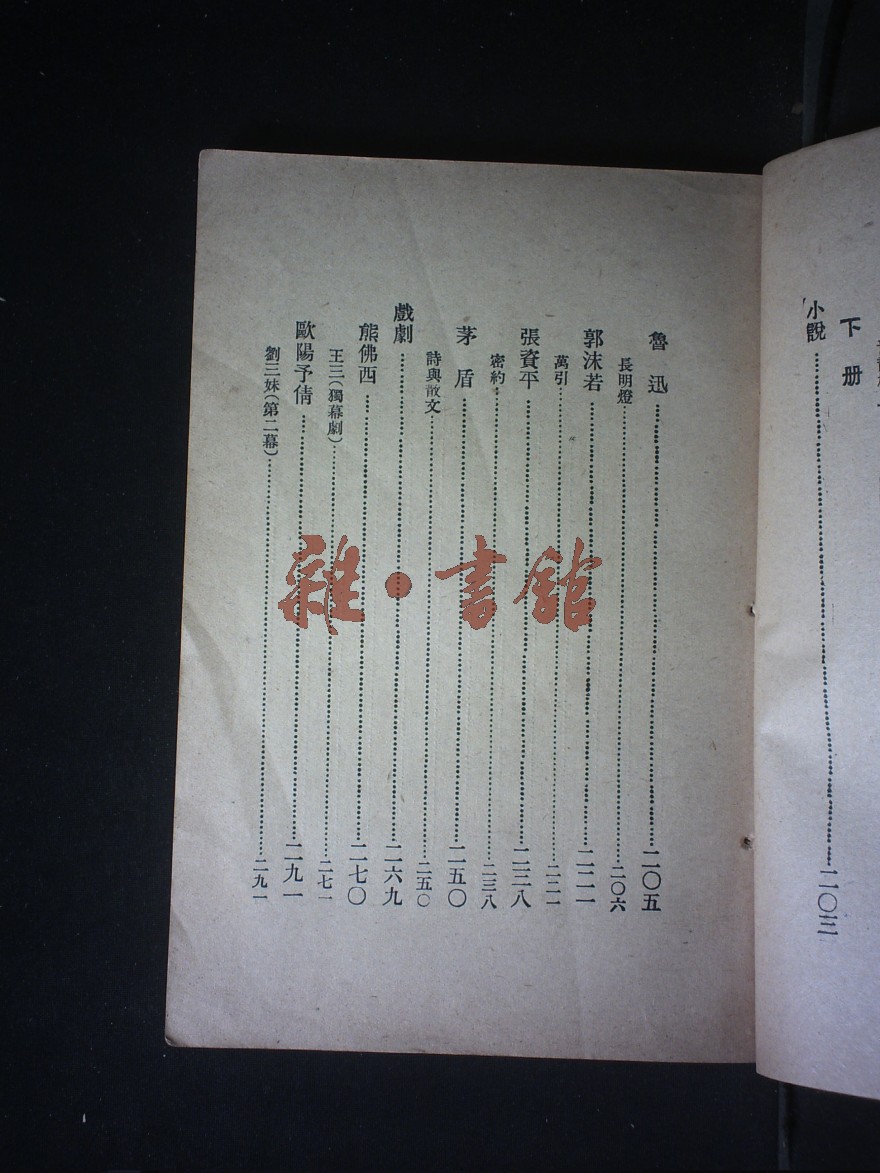 下册
小說……………二〇三
魯迅……………二〇五
長明燈……………二〇六
郭沫若……………二二一
萬引……………二二一
張資平……………二三八
密約……………二三八
茅盾……………二五〇
詩與散文……………二五〇
戲劇……………二六九
熊佛西……………二七〇
王三(獨幕劇)……………二七一
歐陽予倩……………二九一
劉三妹(第二幕)……………二九一
雜·書館